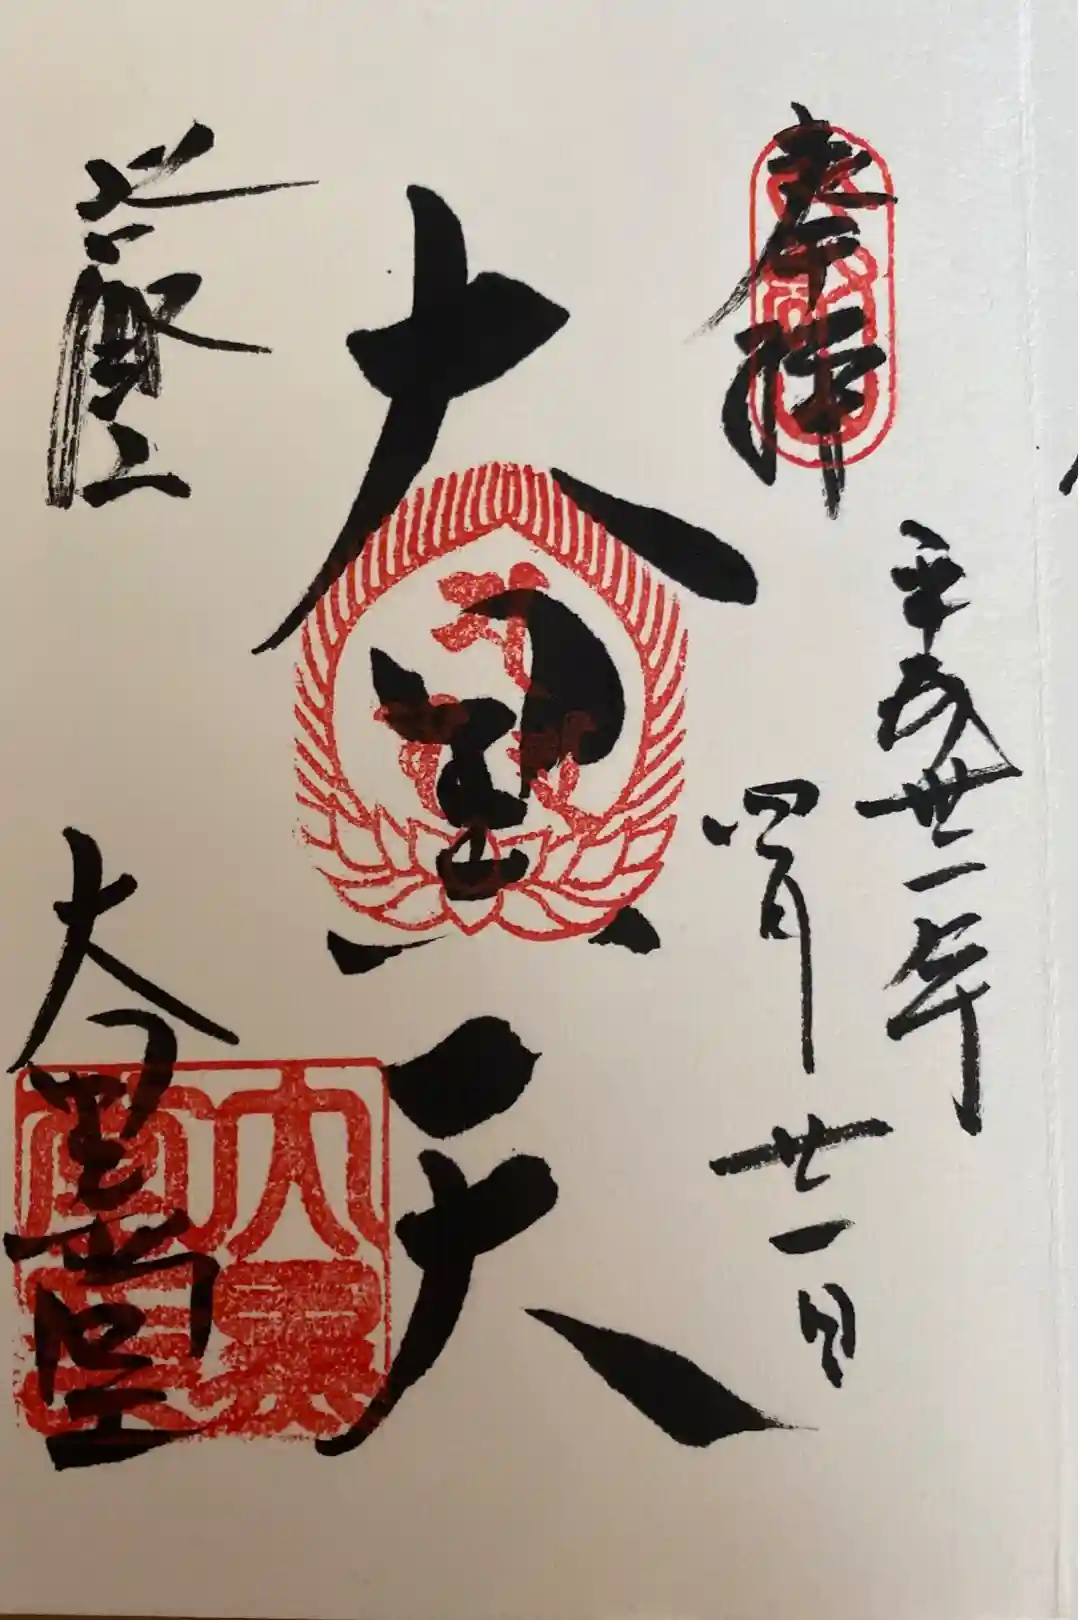 奉拝
平成丗一年
四月廿一日
大黒天
比叡山
大黒堂